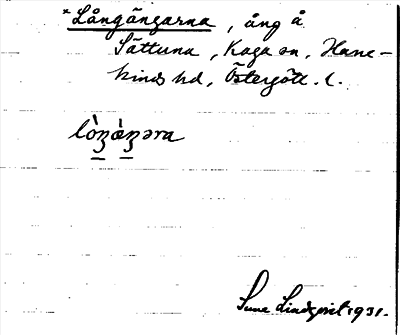 *Långängarna, äng å
Sättuna, Kaga sn, Hane-
kinds hd, Östergötl. l.
lòŋæ̀ŋəra
Sune Lindqvist 1931.